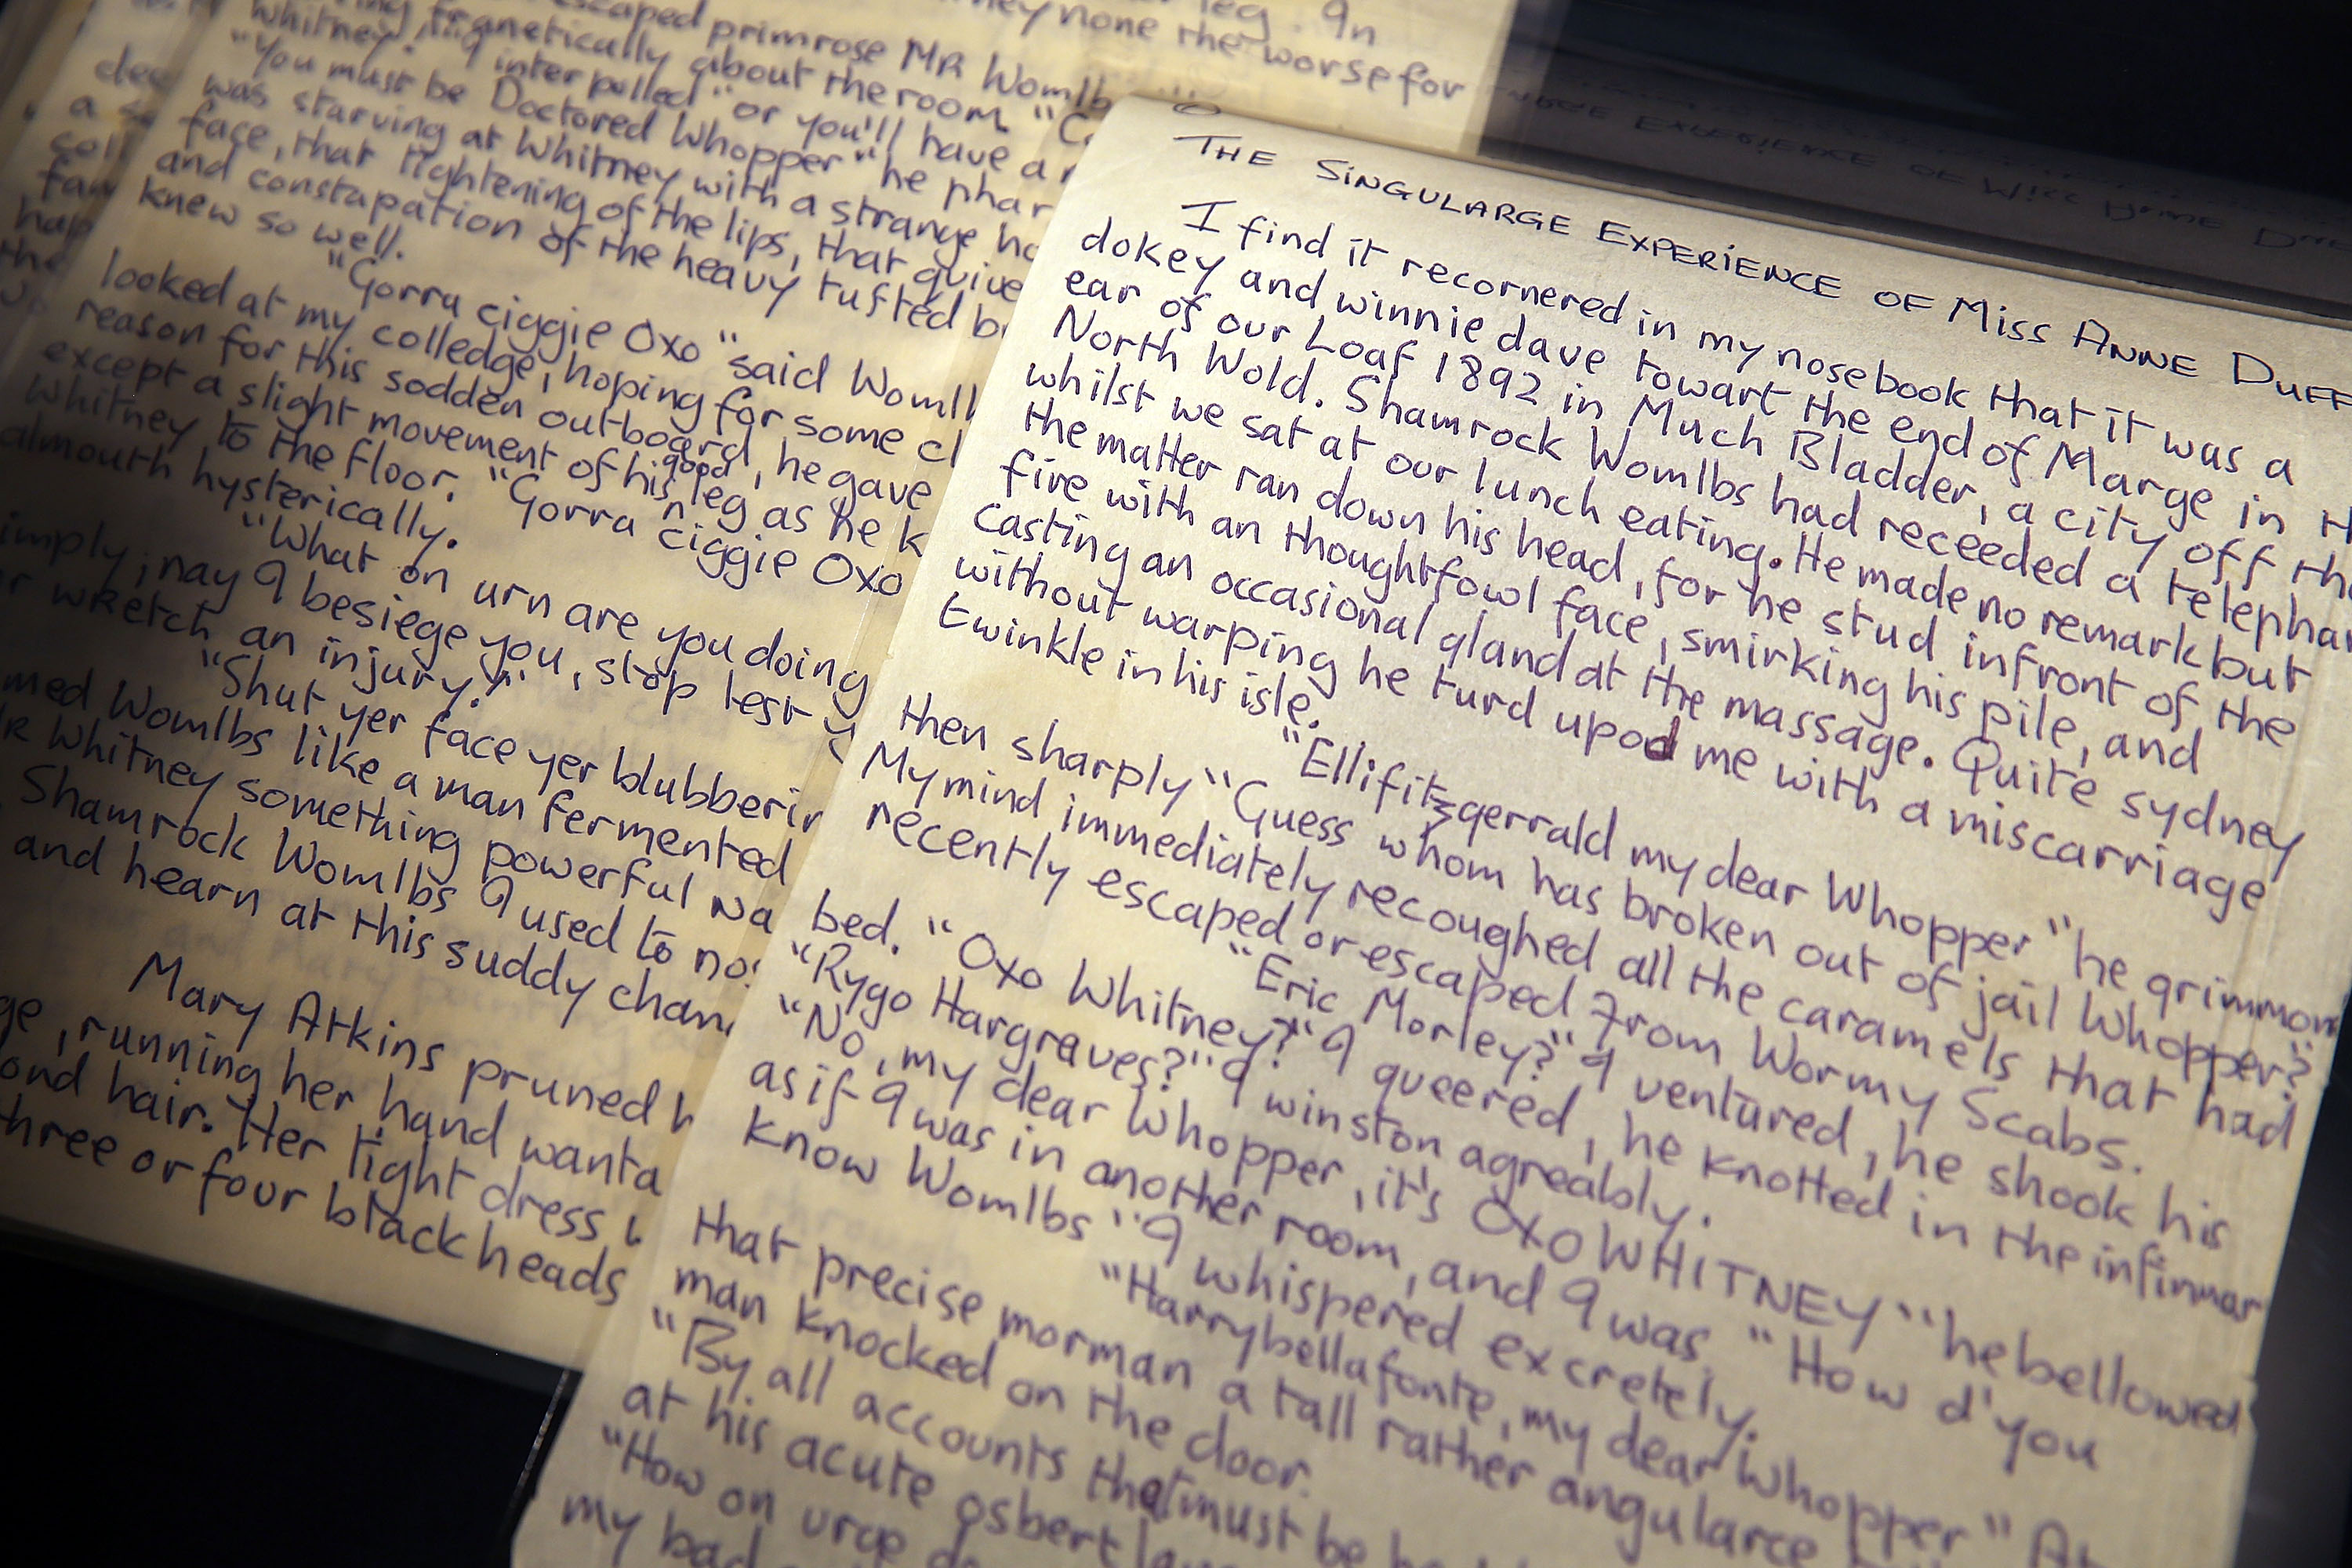 leg. 9n
ney none the worse for
escaped primrose MR Womlb
franetically about the room. "C
Whitney!" 9 interpolled "or you'll have a
"You must be Doctored Whopper" he phar
was starving at Whitney with a strange
face, that tightening of the lips, that quive
and constapation of the heavy tufted b
knew so well.
"Gorra ciggie Oxo" said Womll
looked at my colledge, hoping for some cl
reason for this sodden outboard, he gave
except a slight movement of his good leg as he k
Whitney to the floor. "Gorra ciggie Oxo
almouth hysterically.
"What on urn are you doing
imply; nay 9 besiege you, stop lest
wretch an injury!"
"Shut yer face yer blubberin
med Womlbs like a man fermented
R Whitney something powerful na
Shamrock Womlbs 9 used to no
and hearn at this suddy chan
Mary Atkins pruned h
ge, running her hand wanta
ond hair. Her tight dress
three or four black heads
THE SINGULARGE EXPERIENCE OF MISS ANNE DUFF
I find it recornered in my nosebook that it was a
dokey and winnie dave towart the end of Marge in th
ear of our Loaf 1892 in Much Bladder, a city off the
North Wold. Shamrock Womlbs had receeded a telephan
whilst we sat at our lunch eating. He made no remark but
the matter ran down his head, for he stud infront of the
fire with an thoughtfowl face, smirking his pile, and
casting an occasional gland at the massage. Quite sydney
without warping he turd upod me with a miscarriage
twinkle in his isle.
"Ellifitzgerrald my dear Whopper" he grimmon
then sharply "Guess whom has broken out of jail Whopper?"
My mind immediately recoughed all the caramels that had
recently escaped or escaped from Wormy Scabs.
"Eric Morley?" 9 ventured, he shook his
bed. "Oxo Whitney?" 9 queered, he knotted in the infirmar
"Rygo Hargraves?" 9 winston agreably.
"No, my dear Whopper, it's OXO WHITNEY" he bellowed
as if 9 was in another room, and 9 was. "How d'you
know Womlbs" 9 whispered excretely.
"Harrybellafonte, my dear Whopper" At
that precise morman a tall rather angularce
man knocked on the door.
"By all accounts that must be
at his acute osbert
"How on urge
my bad